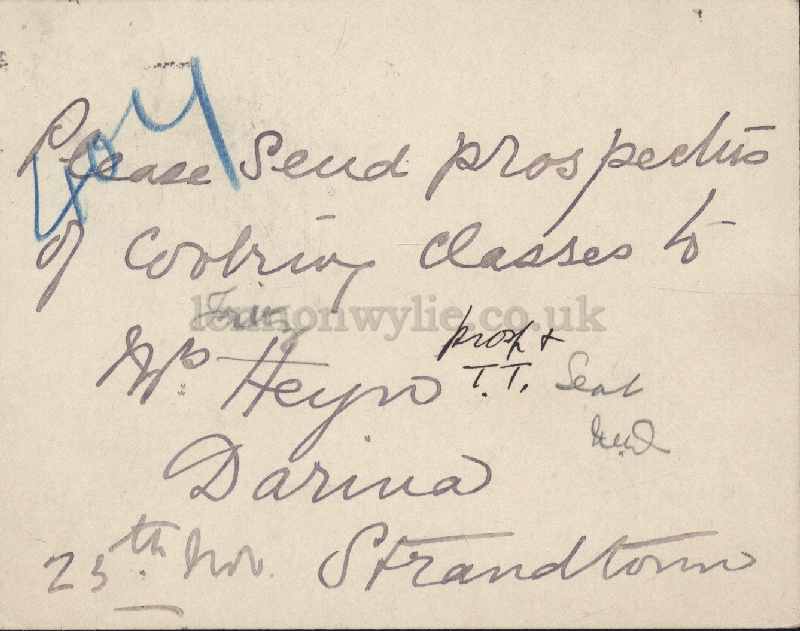 Please send prospectus
of cooking classes to
lennonwylie.co.uk
Mrs Heyn
prosp +
T.T. Sent
Darina
25th Nov. Strandtown